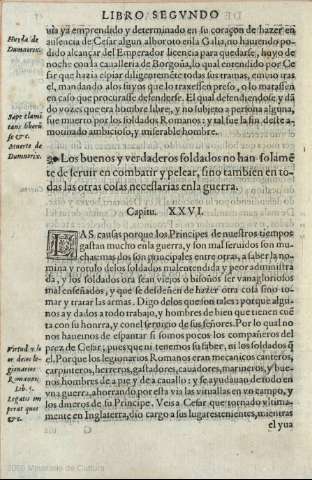 LIBRO SEGVNDO
Huyda de
Dumnorix.
uia ya emprendido y determinado en su coraçon de hazer en
ausencia de Cesar algun alboroto en la Galia, no hauiendo po-
dido alcançar del Emperador licencia para quedarse, huyo de
noche con la caualleria de Borgoña, lo qual entendido por Ce
sar que hazia espiar diligentemẽte todas sus tramas, embio tras
el, mandando a los suyos que lo traxessen preso, o lo matassen
en caso que procurasse defenderse. El qual defendiendose, y dã
do vozes que era hõbre libre, y no subjeto a persona alguna,
fue muerto por los soldados Romanos: y tal fue la fin deste a-
motinado ambicioso, y miserable hombre.
Muerte de
Dumnorix.
Los buenos y verdaderos soldados no han solamẽ
te de seruir en combatir y pelear, sino tambien en to-
das las otras cosas necessarias en la guerra.
Capitu. XXVI.
LAS causas porque los Principes de nuestros tiempos
gastan mucho en la guerra, y son mal seruidos son mu
chas, mas dos son principales entre otras, a saber la no-
mina y rotulo delos soldados mal entendida y peor administra
da, y los soldados ora sean viejos o bisoños ser vanagloriosos
mal enseñados, y que se desdeñen de hazer otra cosa sino to-
mar y tratar las armas. Digo delos que son tales: porque algu-
nos ay dados a todo trabajo, y hombres de bien que tienen cuẽ
ta con su honrra, y con el seruicio de sus señores. Por lo qual no
nos hauemos de espantar si somos pocos los compañeros del
preza de Cesar; pues que ni tenemos su saber, ni los soldados q̃
el. Porque los legionarios Romanos eran mecanicos canteros,
carpinteros, herreros, gastadores, cauadores, marineros, y bue-
nos hombres de a pie y de a cauallo: y se ayudauan de todo en
vna guerra, ahorrando por esta via las vituallas en vn tampo, y
los dineros de su Principe. Veis a Cesar que tornado vltima-
mente en Inglaterra, dio cargo a sus lugarestenientes, mientras
el yua
Romanos,
Lib. 5.
2009 Ministerio de Cultura